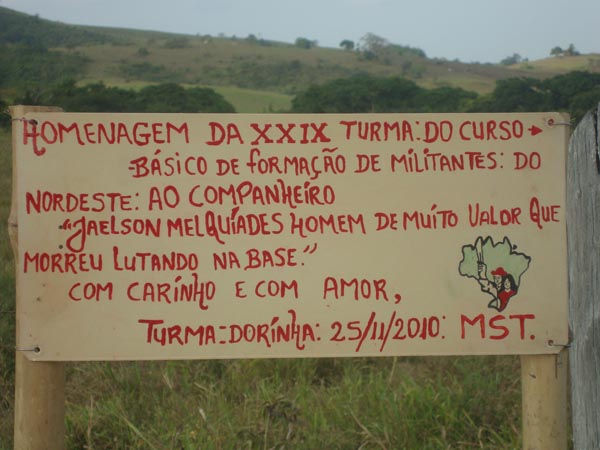 HOMENAGEM DA XXIX TURMA: DO CURSO →
-BÁSICO DE FORMAÇÃO DE MILITANTES: DO
NORDESTE: AO COMPANHEIRO
"JAELSON MELQUÍADES HOMEM DE MUITO VALOR QUE
MORREU LUTANDO NA BASE."
COM CARINHO E COM AMOR,
TURMA-DORINHA: 25/11/2010: MST.